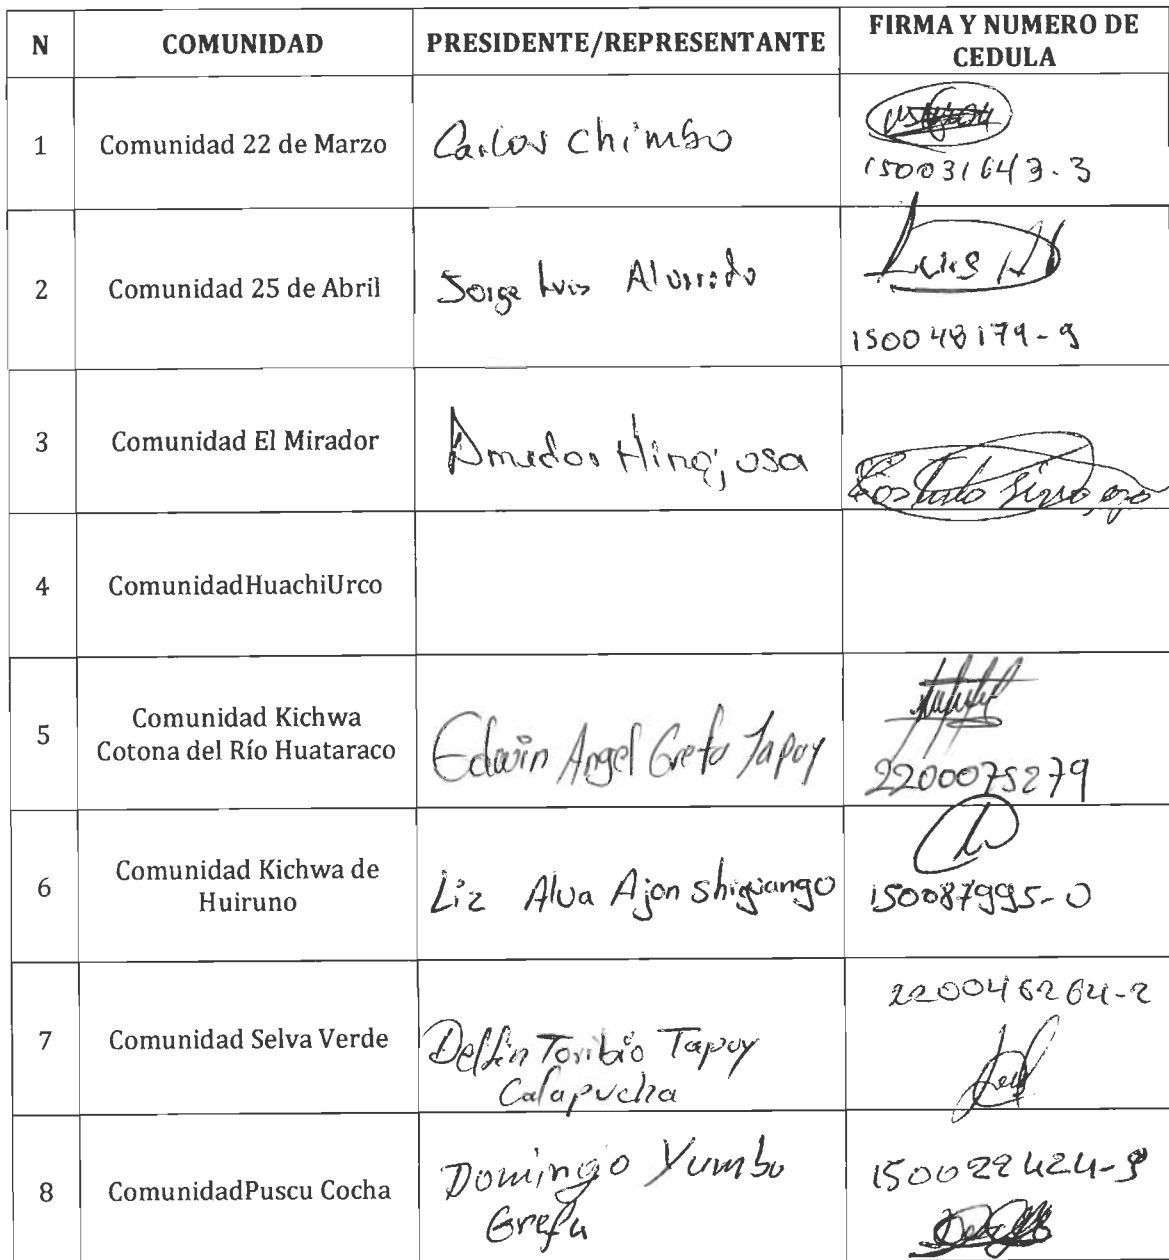 N COMUNIDAD PRESIDENTE/REPRESENTANTE FIRMA Y NUMERO DE
CEDULA
1 Comunidad 22 de Marzo Carlos Chimbo
150031643-3
2 Comunidad 25 de Abril Jorge Luis Alvarado Luis
150048179-9
3 Comunidad El Mirador Amador Hinojosa
4 ComunidadHuachiUrco
5 Comunidad Kichwa
Cotona del Río Huataraco Edwin Angel Grefa Tapuy
2200075279
6 Comunidad Kichwa de
Huiruno Liz Alva Ajon Shiguango
150087995-0
7 Comunidad Selva Verde Delfin Toribio Tapuy
Calapucha
220046264-2
8 ComunidadPuscu Cocha Domingo Yumbo
Grefa
150029424-9